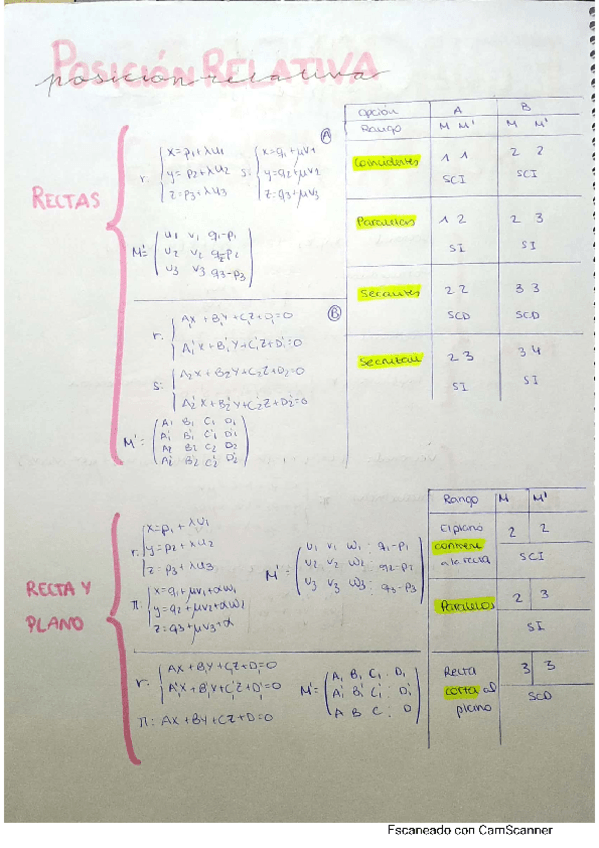 POSICIÓN RELATIVA
posición relativa
RECTAS
A
r: { x=p1+λu1
y=p2+λu2
z=p3+λu3
s: { x=q1+μv1
y=q2+μv2
z=q3+μv3
M'= ( u1 v1 q1-p1
u2 v2 q2-p2
u3 v3 q3-p3 )
B
r: { A1X+B1Y+C1Z+D1=0
A1'X+B1'Y+C1'Z+D1'=0
s: { A2X+B2Y+C2Z+D2=0
A2'X+B2'Y+C2'Z+D2'=0
M'= ( A1 B1 C1 D1
A1' B1' C1' D1'
A2 B2 C2 D2
A2' B2' C2' D2' )
Opción A B
Rango M M' M M'
Coincidentes 1 1 2 2
SCI SCI
Paralelas 1 2 2 3
SI SI
Secantes 2 2 3 3
SCD SCD
Se cruzan 2 3 3 4
SI SI
RECTA Y
PLANO
r: { x=p1+λu1
y=p2+λu2
z=p3+λu3
π: { x=q1+μv1+αw1
y=q2+μv2+αw2
z=q3+μv3+α
M'= ( u1 v1 w1 : q1-p1
u2 v2 w2 : q2-p2
u3 v3 w3 : q3-p3 )
r: { AX+B1Y+C1Z+D1=0
A1'X+B1'Y+C1'Z+D1'=0
π: AX+BY+CZ+D=0
M'= ( A1 B1 C1 : D1
A1' B1' C1' : D1'
A B C : D )
Rango M M'
El plano 2 2
contiene
a la recta SCI
Paralelos 2 3
SI
Recta 3 3
corta al SCD
plano
Escaneado con CamScanner